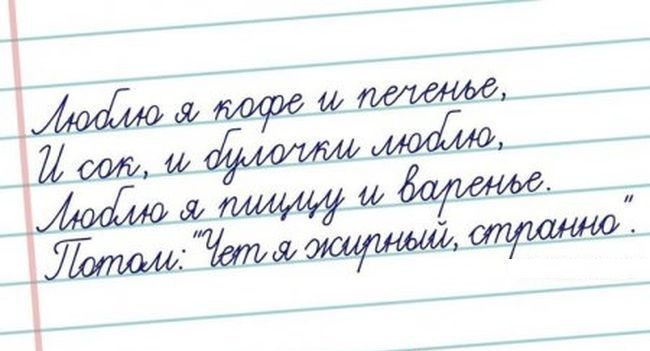 Люблю я кофе и печенье,
И сок, и булочки люблю,
Люблю я пиццу и варенье.
Потом: "Чет я жирный, странно".